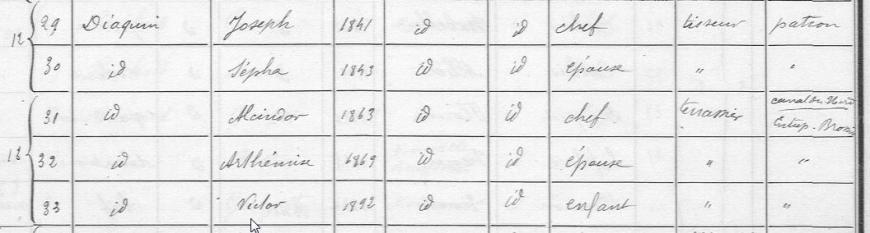 12 29 Diaquin Joseph 1841 id id chef tisseur patron
30 id Sépha 1843 id id épouse " "
31 id Alcindor 1863 id id chef terrassier canal du Nord
Entrep.
13 32 id Arthémise 1869 id id épouse " "
33 id Victor 1892 id id enfant " "